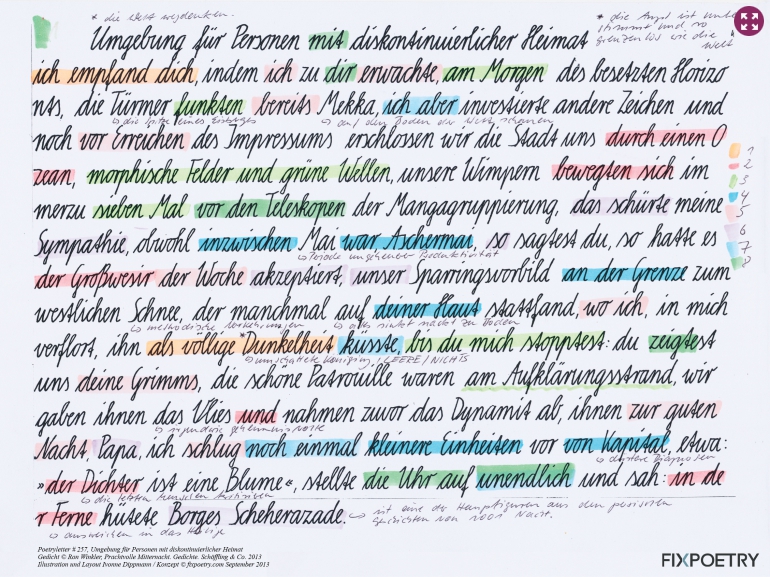 * die Welt wegdenken.
* die Angst ist
und so
grenzenlos wie die
Welt
Umgebung für Personen mit diskontinuierlicher Heimat
ich empfand dich, indem ich zu dir erwachte, am Morgen des besetzten Horizo
nts, die Türmer funkten bereits Mekka, ich aber investierte andere Zeichen und
die Spitze eines Eisberges
auf den Boden der Welt schauen
noch vor Erreichen des Impressums erschlossen wir die Stadt uns durch einen O
zean, morphische Felder und grüne Wellen, unsere Wimpern bewegten sich im
merzu sieben Mal vor den Teleskopen der Mangagruppierung, das schürte meine
Sympathie, obwohl inzwischen Mai war Aschermai, so sagtest du, so hatte es
Periode ungeheurer Produktivität
der Großwesir der Woche akzeptiert, unser Sparringsvorbild an der Grenze zum
westlichen Schnee, der manchmal auf deiner Haut stattfand, wo ich, in mich
methodische
alles sinkt nackt zu Boden
verflort, ihn als völlige *Dunkelheit küsste, bis du mich stopptest: du zeigtest
/ LEERE / NICHTS
uns deine Grimms, die schöne Patrouille waren am Aufklärungsstrand, wir
gaben ihnen das Vlies und nahmen zuvor das Dynamit ab, ihnen zur guten
irgendwie geheimnisvolle
Nacht, Papa, ich schlug noch einmal kleinere Einheiten vor von Kapital, etwa:
düstere Diagnosen
»der Dichter ist eine Blume«, stellte die Uhr auf unendlich und sah: in de
die letzten Menschen
r Ferne hütete Borges Scheherazade.
ist eine der Hauptfiguren aus den persischen
Geschichten von 1001 Nacht.
ausweichen in das Heilige
1
2
3
4
5
6
7
8
Poetryletter # 257, Umgebung für Personen mit diskontinuierlicher Heimat
Gedicht © Ron Winkler, Prachtvolle Mitternacht. Gedichte. Schöffling & Co. 2013
Illustration und Layout Ivonne Dippmann / Konzept © fixpoetry.com September 2013
FIXPOETRY